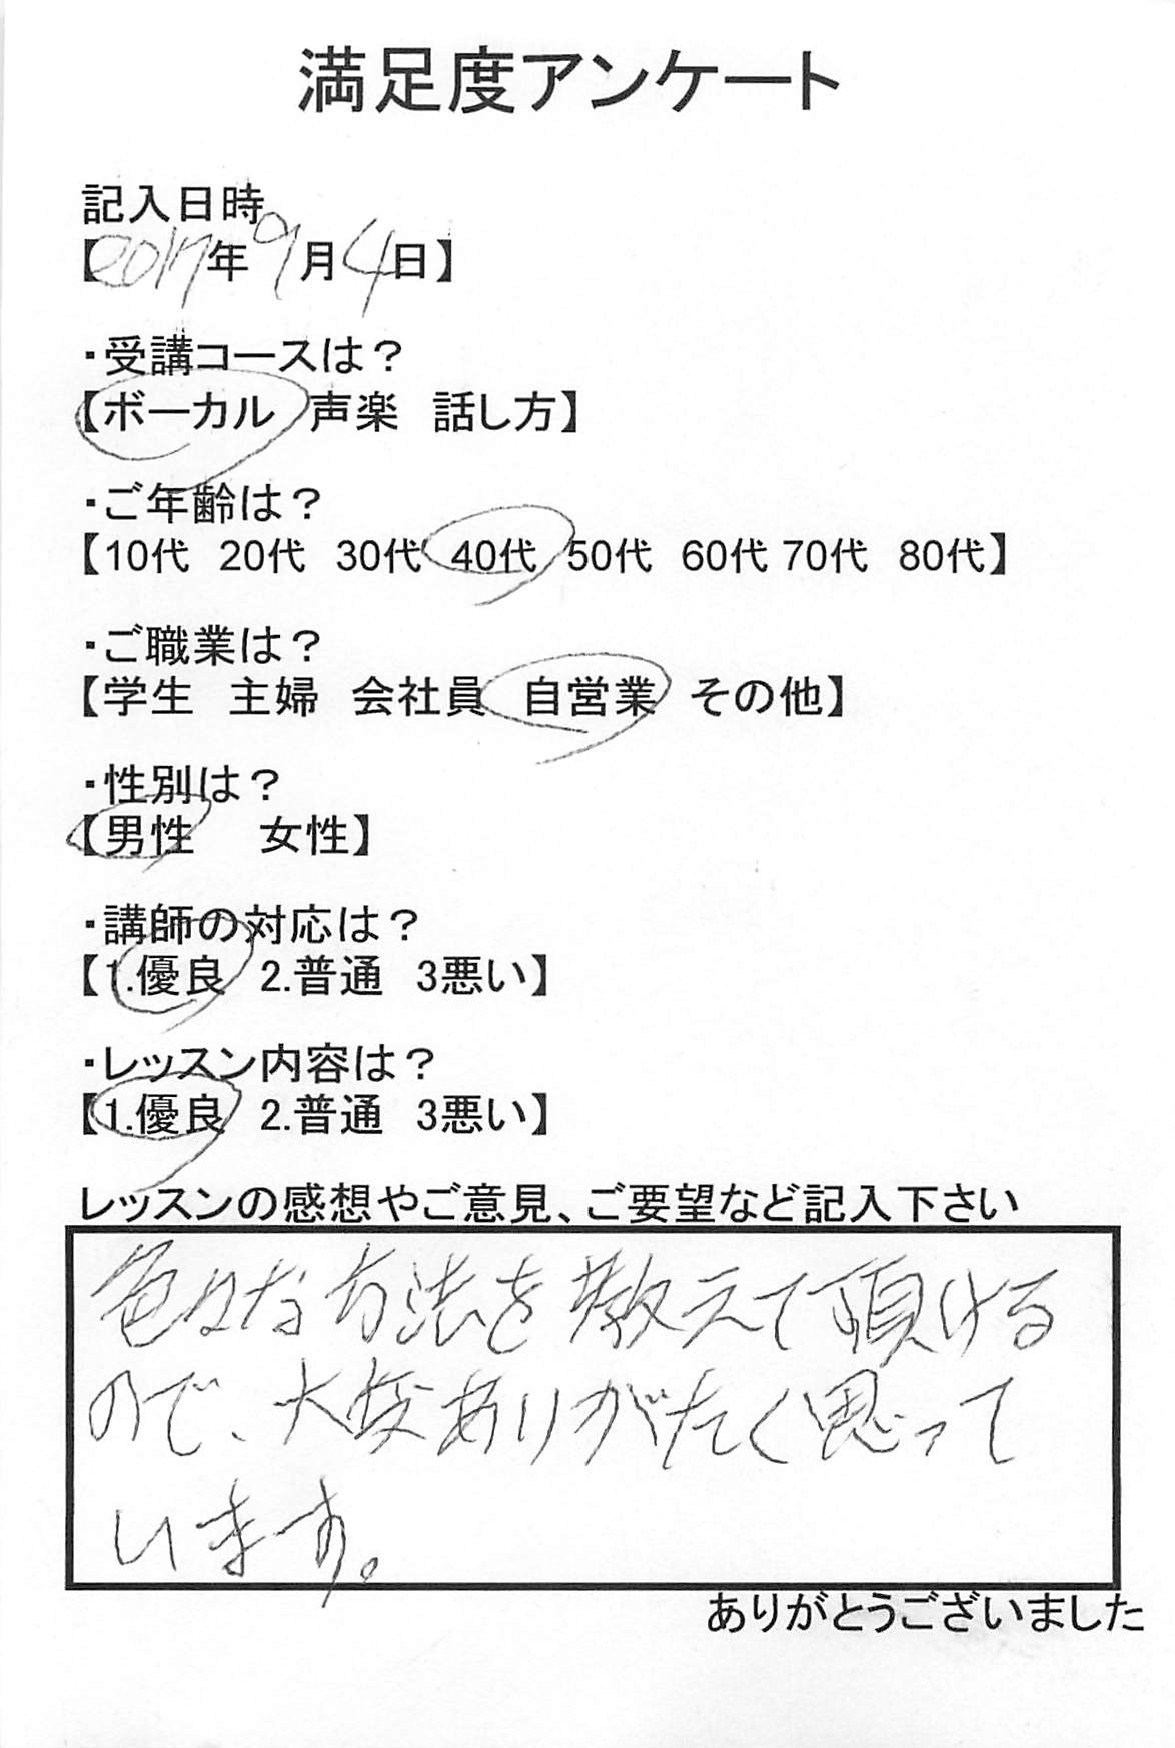 満足度アンケート
記入日時
【2017年9月4日】
・受講コースは？
【ボーカル 声楽 話し方】
・ご年齢は？
【10代 20代 30代 40代 50代 60代 70代 80代】
・ご職業は？
【学生 主婦 会社員 自営業 その他】
・性別は？
【男性 女性】
・講師の対応は？
【1.優良 2.普通 3悪い】
・レッスン内容は？
【1.優良 2.普通 3悪い】
レッスンの感想やご意見、ご要望など記入下さい
色々な方法を教えて頂ける
ので、大変ありがたく思って
います。
ありがとうございました